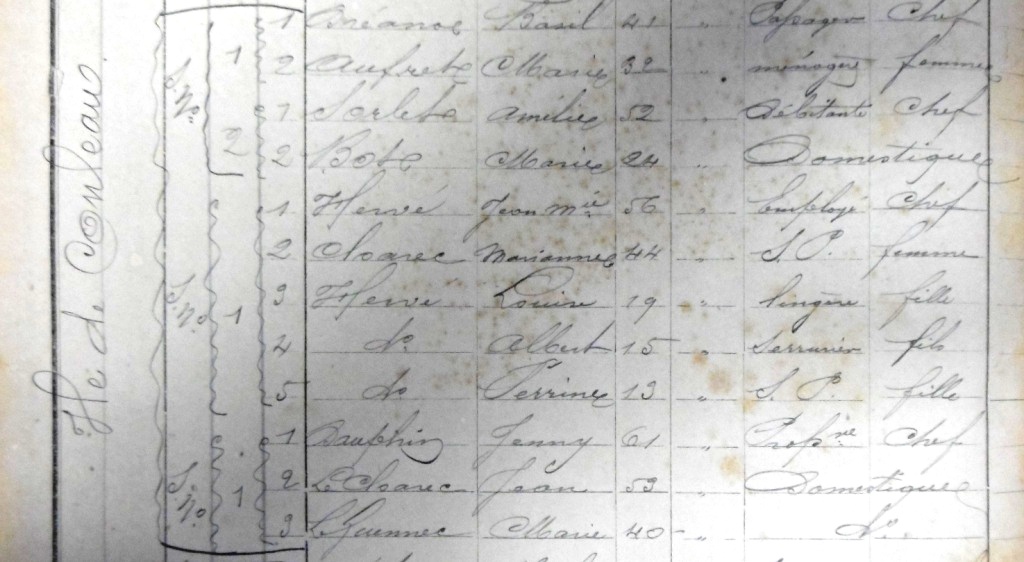 Ile de Conleau
S. No 1 1 Bréanoc Basil 41 " Passager Chef
2 Aufret Marie 32 " ménagère femme
2 1 Sorlet Amélie 52 " Débitante Chef
2 Bot Marie 24 " Domestique
S. No 1 1 Hervé Jean Mie 56 " Employé Chef
2 Cloarec Marianne 44 " S. P. femme
3 Hervé Louise 19 " lingère fille
4 do Albert 15 " Serrurier fils
5 do Perrine 13 " S. P. fille
S. No 1 1 Dauphin Jenny 61 " Propre Chef
2 Le Cloarec Jean 59 " Domestique
3 Le Guennec Marie 40 " do